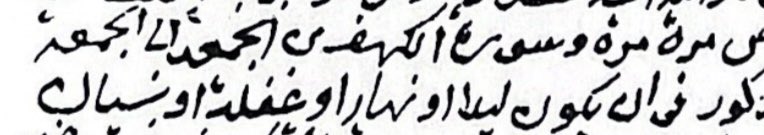 مرة مرة وسورة الكهف من الجمعة الى الجمعة
ذكور فى ان يكون ليلا او نهارا او غفلة او نسيان